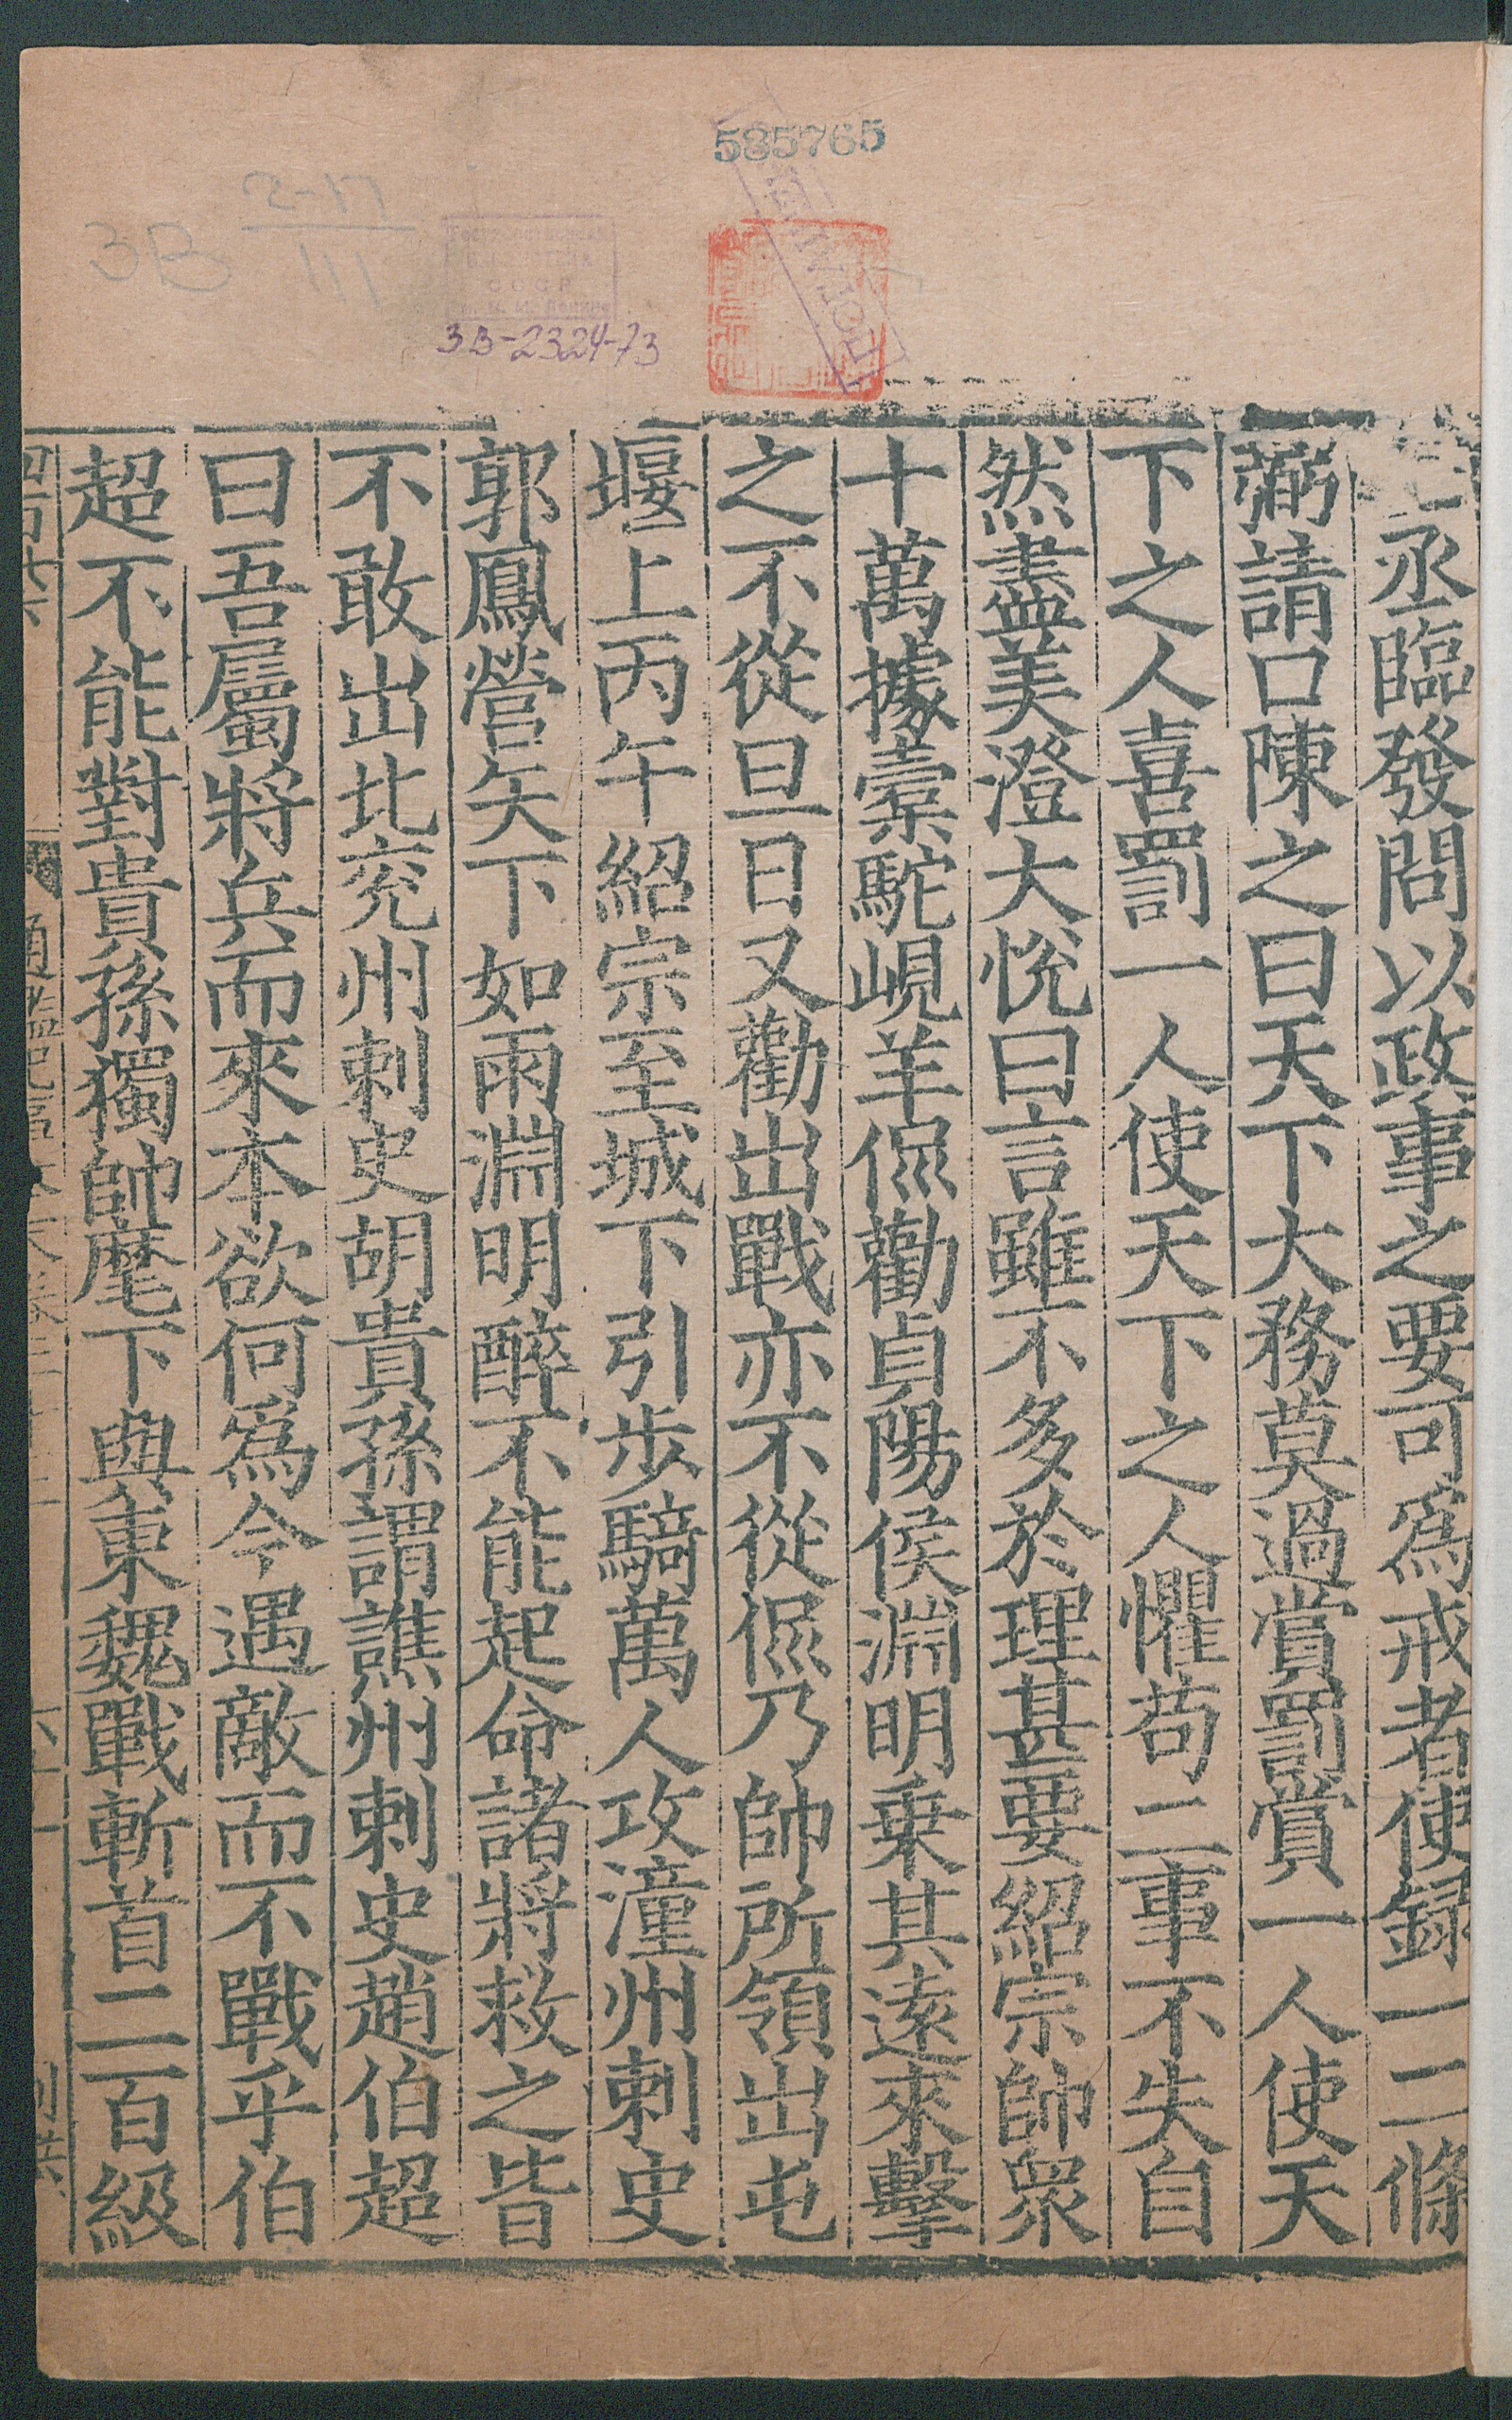 585765
3B 2-17
111
СССР
3B-2324-73
丞臨發問以政事之要可為戒者使錄一二條
弼請口陳之曰天下大務莫過賞罰賞一人使天
下之人喜罰一人使天下之人懼苟二事不失自
然盡美澄大悅曰言雖不多於理甚要紹宗帥眾
十萬據橐駝峴羊侃勸貞陽侯淵明乗其逺來擊
之不從旦日又勸出戰亦不從侃乃帥所領出屯
堰上丙午紹宗至城下引步騎萬人攻潼州刺史
郭鳳營矢下如雨淵明醉不能起命諸將救之皆
不敢出北兗州刺史胡貴孫謂譙州刺史趙伯超
曰吾屬將兵而來本欲何爲今遇敵而不戰乎伯
超不能對貴孫獨帥麾下與東魏戰斬首二百級